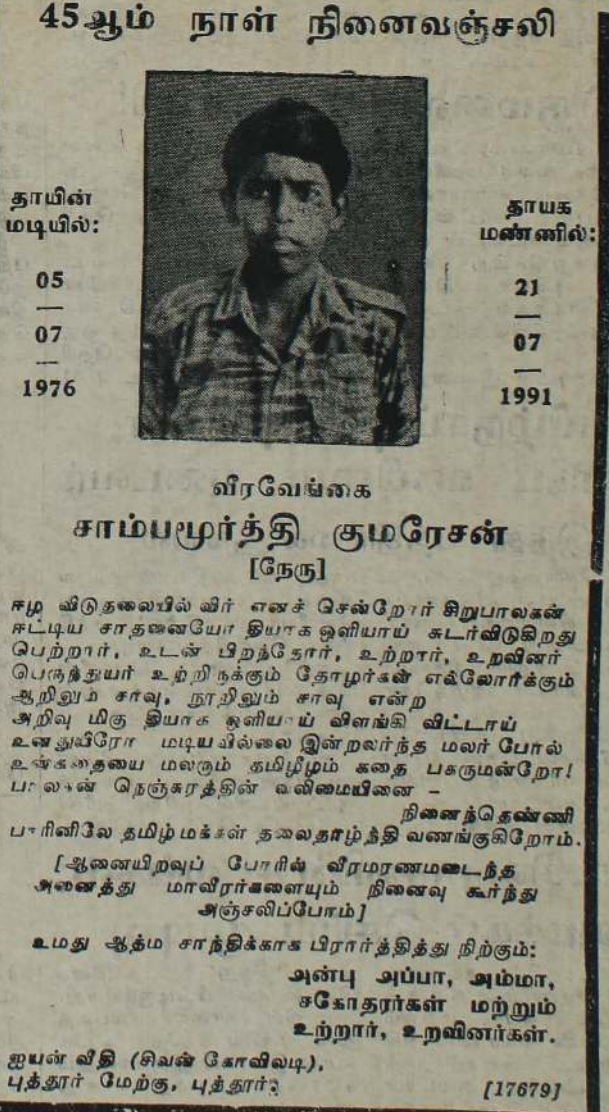 45ஆம் நாள் நினைவஞ்சலி
தாயின்
மடியில்:
05
—
07
—
1976
தாயக
மண்ணில்:
21
—
07
—
1991
வீரவேங்கை
சாம்பமூர்த்தி குமரேசன்
[நேரு]
ஈழ விடுதலையில் விர் எனச் சென்றோர் சிறுபாலகன்
ஈட்டிய சாதனையோ தியாக ஒளியாய் சுடர்விடுகிறது
பெற்றார், உடன் பிறந்தோர், உற்றார், உறவினர்
பெருந்துயர் உற்றிருக்கும் தோழர்கள் எல்லோர்க்கும்
ஆறிலும் சாவு, நூறிலும் சாவு என்ற
அறிவு மிகு தியாக ஒளியாய் விளங்கி விட்டாய்
உனதுயிரோ மடியவில்லை இன்றலர்ந்த மலர் போல்
உன்கதையை மலரும் தமிழீழம் கதை பகருமன்றோ!
பாலகன் நெஞ்சுரத்தின் வலிமையினை –
நினைந்தெண்ணி
பாரினிலே தமிழ் மக்கள் தலைதாழ்த்தி வணங்குகிறோம்.
[ஆனையிறவுப் போரில் வீரமரணமடைந்த
அனைத்து மாவீரர்களையும் நினைவு கூர்ந்து
அஞ்சலிப்போம்]
உமது ஆத்ம சாந்திக்காக பிரார்த்தித்து நிற்கும்:
அன்பு அப்பா, அம்மா,
சகோதரர்கள் மற்றும்
உற்றார், உறவினர்கள்.
ஐயன் வீதி (சிவன் கோவிலடி),
புத்தூர் மேற்கு, புத்தூர்.
[17679]